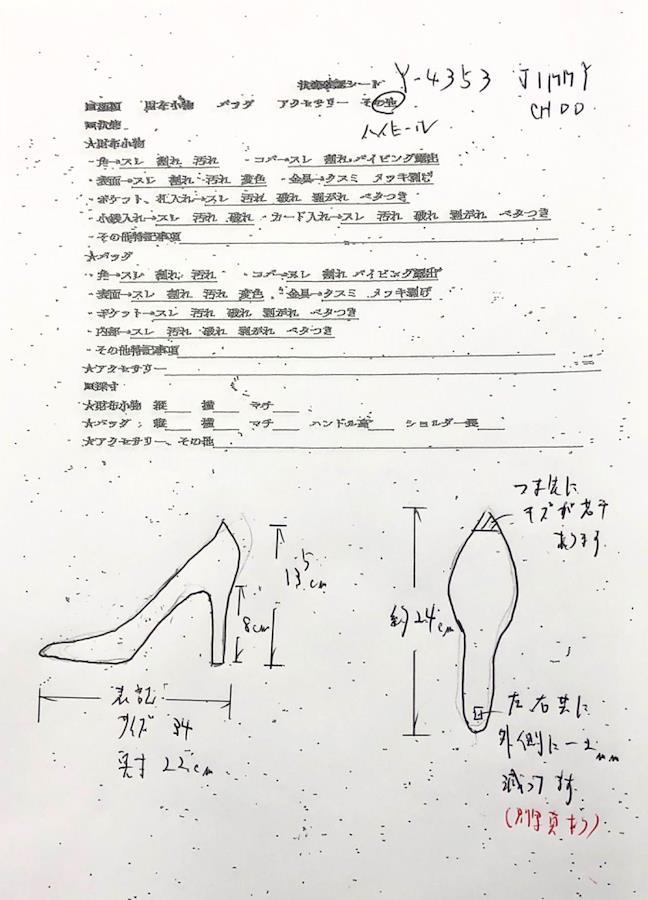 状態確認シート Y-4353 JIMMY CHOO
■種類 財布小物 バッグ アクセサリー その他
ハイヒール
■状態
★財布小物
・角→スレ 割れ 汚れ ・コバ→スレ 割れ パイピング露出
・表面→スレ 割れ 汚れ 変色 ・金具→クスミ メッキ剥げ
・ポケット、札入れ→スレ 汚れ 破れ 剥がれ ベタつき
・小銭入れ→スレ 汚れ 破れ ・カード入れ→スレ 汚れ 破れ 剥がれ ベタつき
・その他特記事項
★バッグ
・角→スレ 割れ 汚れ ・コバ→スレ 割れ パイピング露出
・表面→スレ 割れ 汚れ 変色 ・金具→クスミ メッキ剥げ
・ポケット→スレ 汚れ 破れ 剥がれ ベタつき
・内部→スレ 汚れ 破れ 剥がれ ベタつき
・その他特記事項
★アクセサリー
■採寸
★財布小物 縦 横 マチ
★バッグ 縦 横 マチ ハンドル高 ショルダー長
★アクセサリー、その他
つま先に
キズが若干
あります
13.5cm
8cm
約24cm
表記
サイズ 34
実寸 22cm
左右共に
外側に
減ってます
(別写真あり)